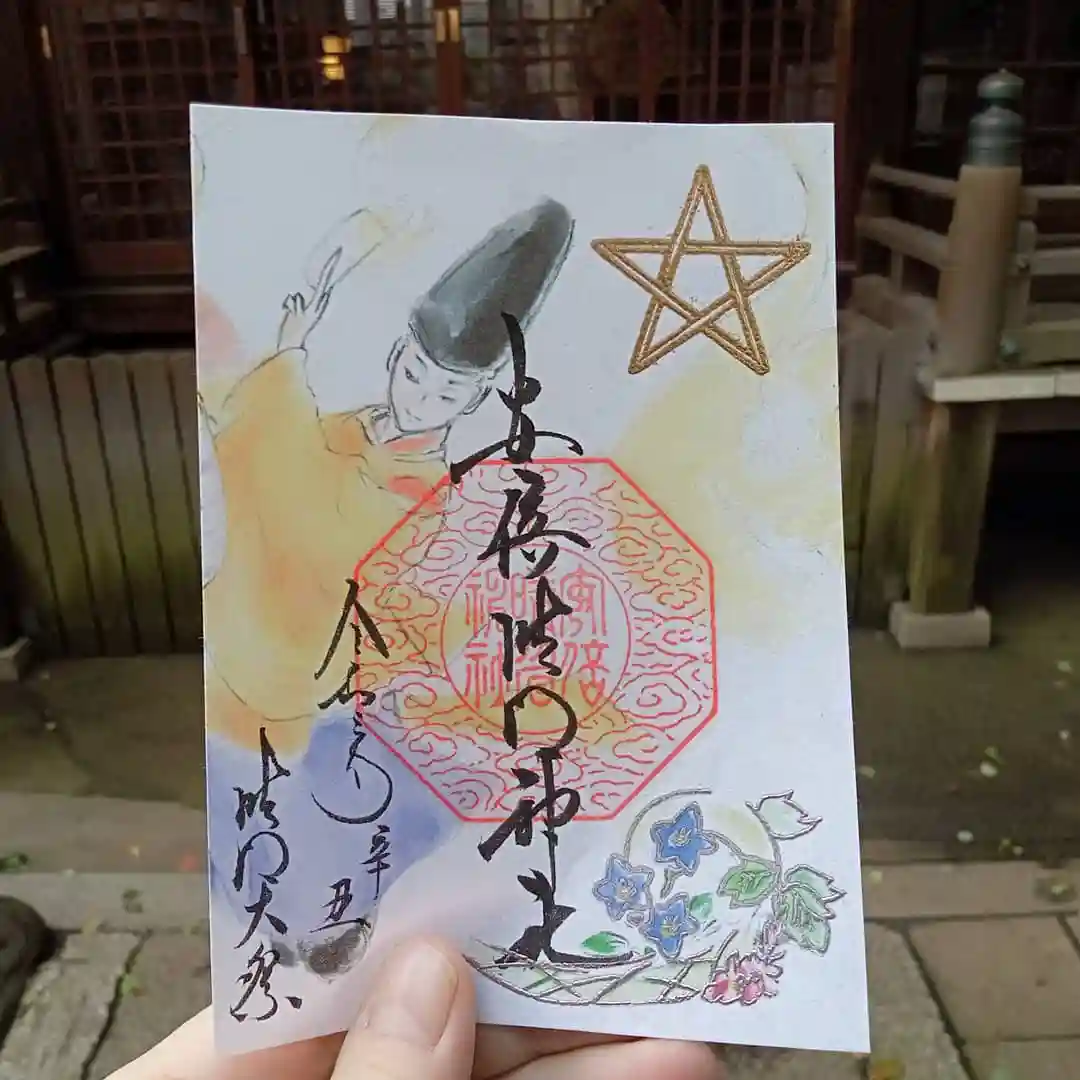 安倍晴明神社
安倍
晴明
神社
令和三年
辛丑
晴明大祭